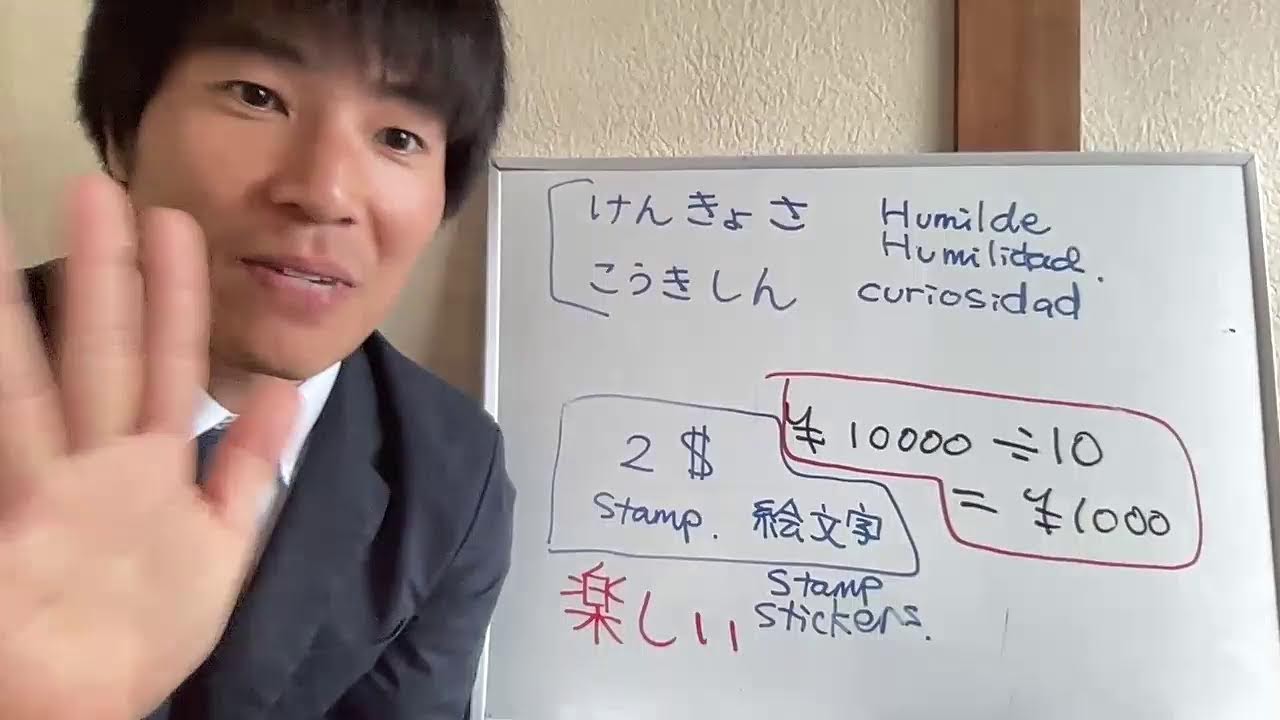 けんきょさ Humilde
Humilidad.
こうきしん curiosidad
2 $ ¥10000÷10
= ¥1000
Stamp. 絵文字
楽しい Stamp
Stickers.